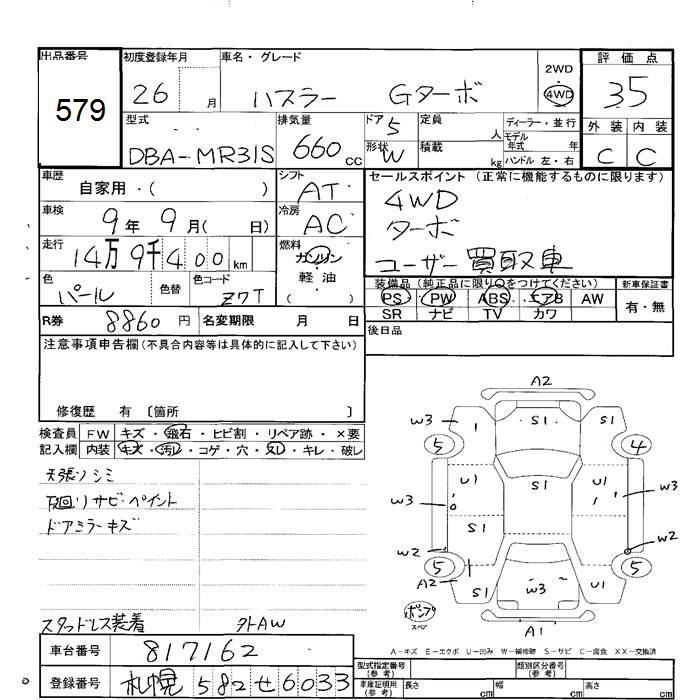 出品番号 初度登録年月 車名・グレード 2WD 評価点
579 26 月 ハスラー Gターボ 4WD 35
型式 排気量 ドア 5 定員 人 ディーラー・並行 外装 内装
DBA-MR31S 660 cc 形状 W 積載 kg モデル年式 年 C C
ハンドル 左・右
車歴 自家用・( ) シフト AT セールスポイント (正常に機能するものに限ります)
車検 9年 9月( 日) 冷房 AC 4WD
走行 14万9千400 km 燃料 ガソリン ターボ
色 パール 色替 色コード Z7T 軽・油 ( ) ユーザー買取車
装備品 (純正品に限り○をつけてください) 新車保証書
PS PW ABS エアB AW 有・無
SR ナビ TV カワ
R券 8860 円 名変期限 月 日 後日品
注意事項申告欄 (不具合内容等は具体的に記入して下さい)
修復歴 有 〔箇所 〕
検査員 FW キズ・飛石・ヒビ割・リペア跡・×要
記入欄 内装 キズ・汚レ・コゲ・穴・スレ・キレ・破レ
天張りシミ
下廻りサビ・ペイント
ドアミラーキズ
スタッドレス装着 外AW
A2
W3 1 S1 S1
5 4
U1 S1 U1
W3 W3
S1
W2 W2
5 5
A2 S1 W3 U1
ポンプ
スペア A1
A-キズ E-エクボ U-凹み W-補修跡 S-サビ C-腐食 XX-交換済
車台番号 817162
登録番号 札幌 582 せ 6033
型式指定番号 (参考) 類別区分番号 (参考)
車庫証明記入欄 (参考) 長さ cm 幅 cm 高さ cm